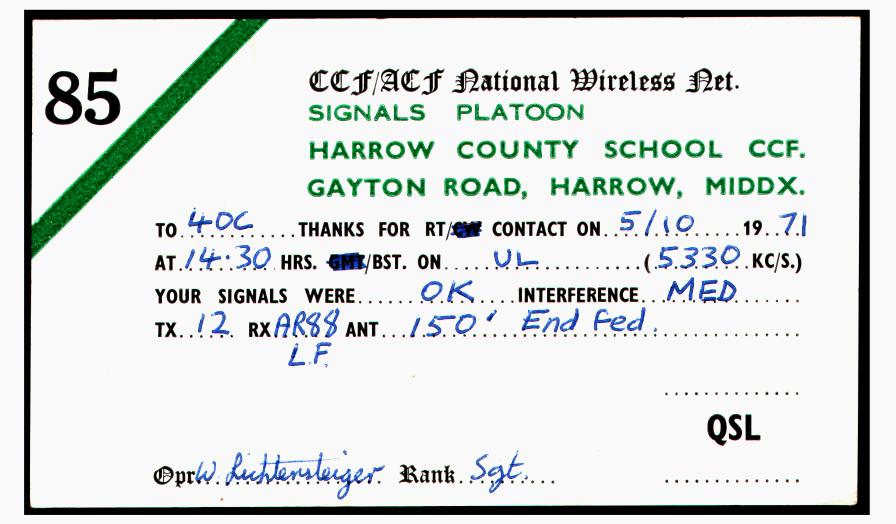 85
CCF/ACF National Wireless Net.
SIGNALS PLATOON
HARROW COUNTY SCHOOL CCF.
GAYTON ROAD, HARROW, MIDDX.
TO 4OC THANKS FOR RT/CW CONTACT ON 5/10 1971
AT 14.30 HRS. GMT/BST. ON UL (5330 KC/S.)
YOUR SIGNALS WERE OK INTERFERENCE MED
TX 12 RX AR88 ANT 150' End Fed.
L.F.
QSL
Opr W. Lichtensteiger Rank Sgt.